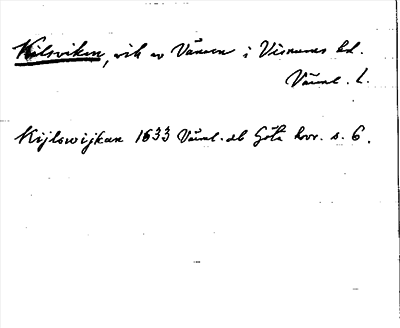 Kilsviken, vik av Vänern i Visnums hd.
Värml. l.
Kijlswijkan 1633 Värml. o Göta hovr. s. 6.